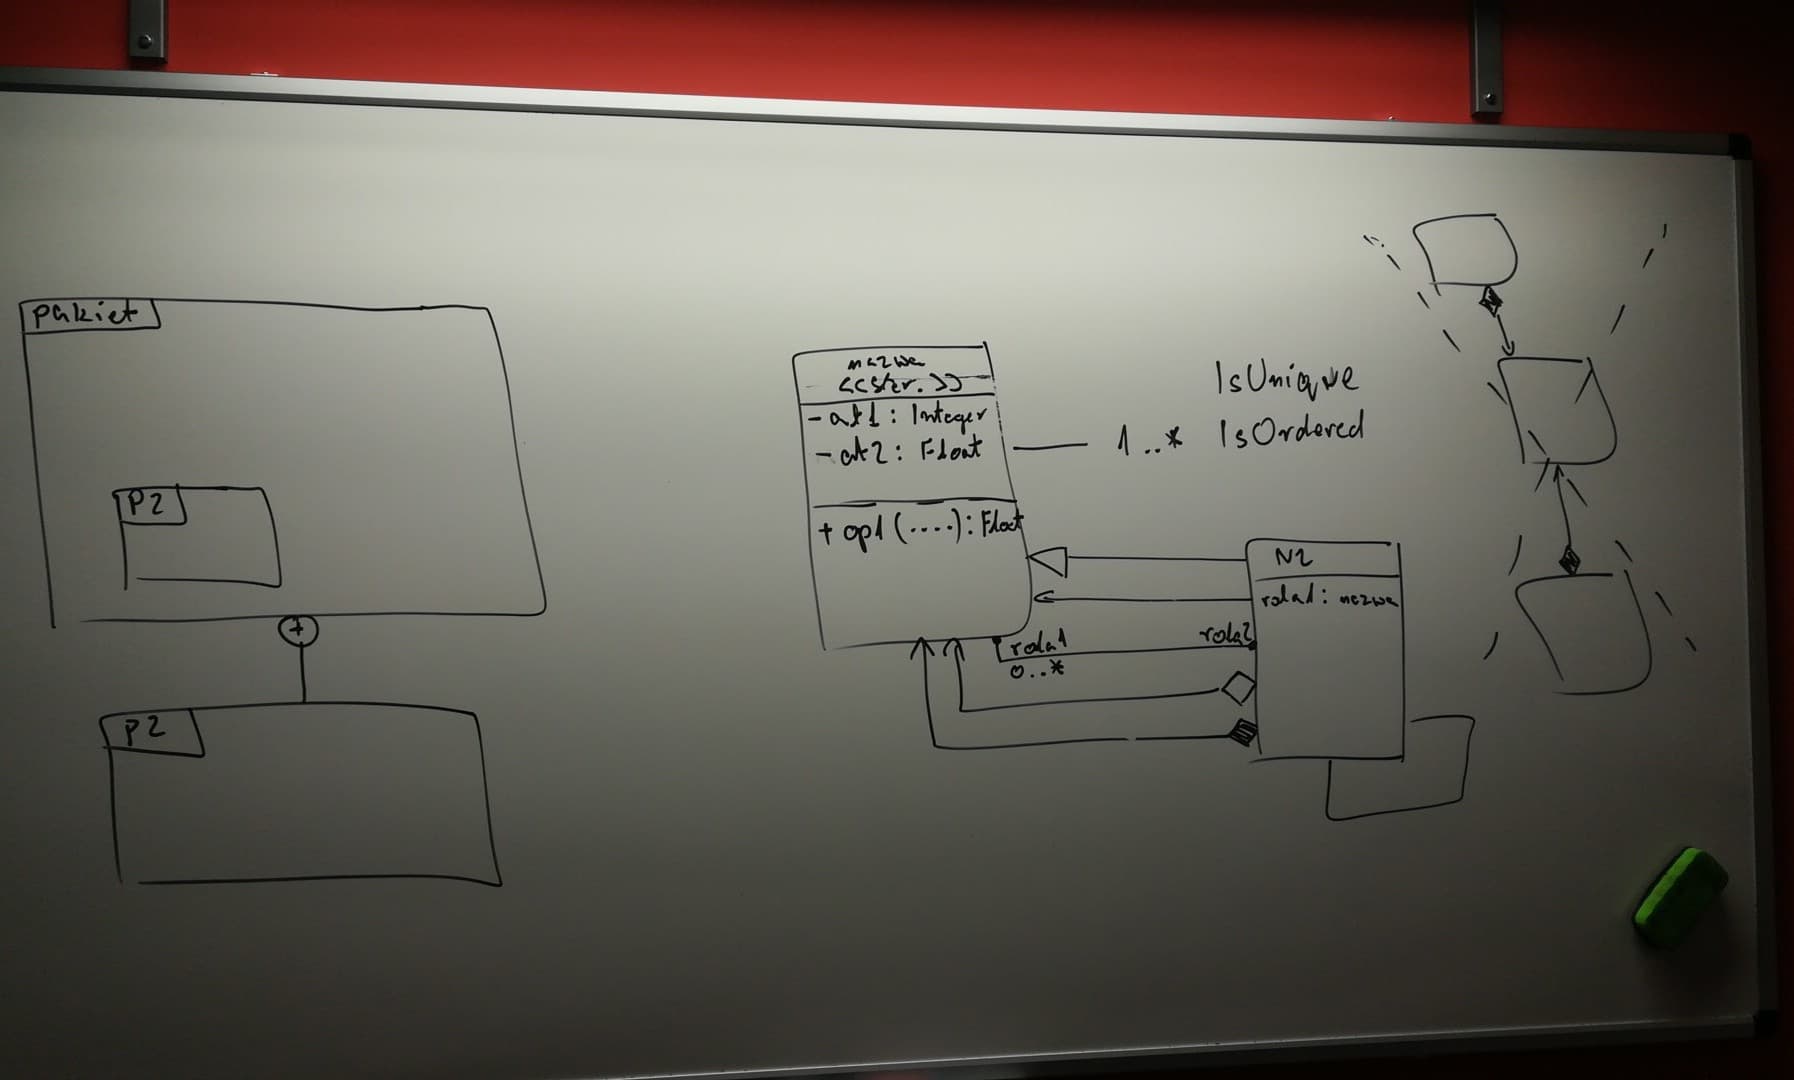 Pakiet
P2
P2
nazwa
<<str.>>
- at1 : Integer
- at2 : Float
1..*
IsUnique
IsOrdered
+ op1 (....) : Float
N2
rola1 : nazwa
rola1
0..*
rola2